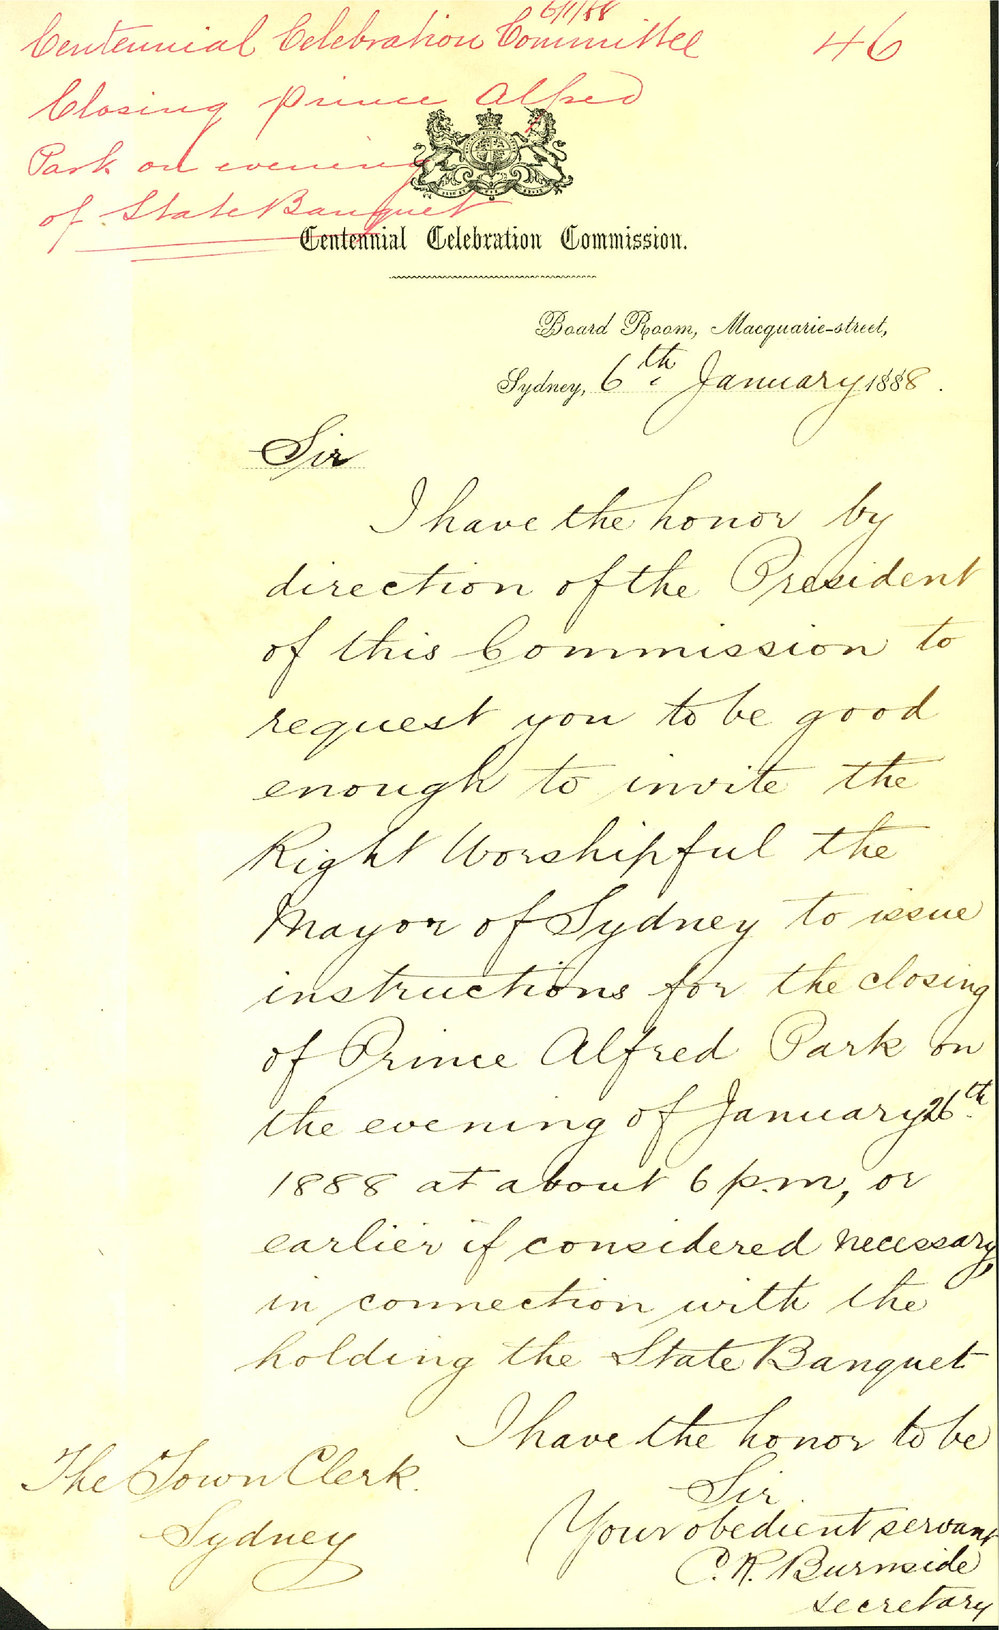 6/1/88
Centennial Celebration Committee 46
Closing Prince Alfred
Park on evening
of State Banquet
Centennial Celebration Commission.
Board Room, Macquarie-street,
Sydney, 6th January 1888.
Sir
I have the honor by
direction of the President
of this Commission to
request you to be good
enough to invite the
Right Worshipful the
Mayor of Sydney to issue
instructions for the closing
of Prince Alfred Park on
the evening of January 26th
1888 at about 6 p.m, or
earlier if considered necessary,
in connection with the
holding the State Banquet
I have the honor to be
Sir
Your obedient servant
C. R. Burnside
Secretary
The Town Clerk.
Sydney